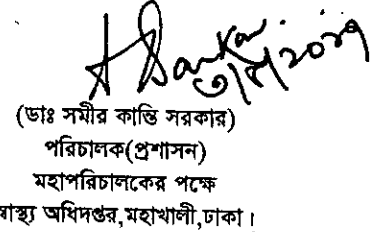 (ডাঃ সমীর কান্তি সরকার)
পরিচালক(প্রশাসন)
মহাপরিচালকের পক্ষে
বাস্থ্য অধিদপ্তর,মহাখালী,ঢাকা।